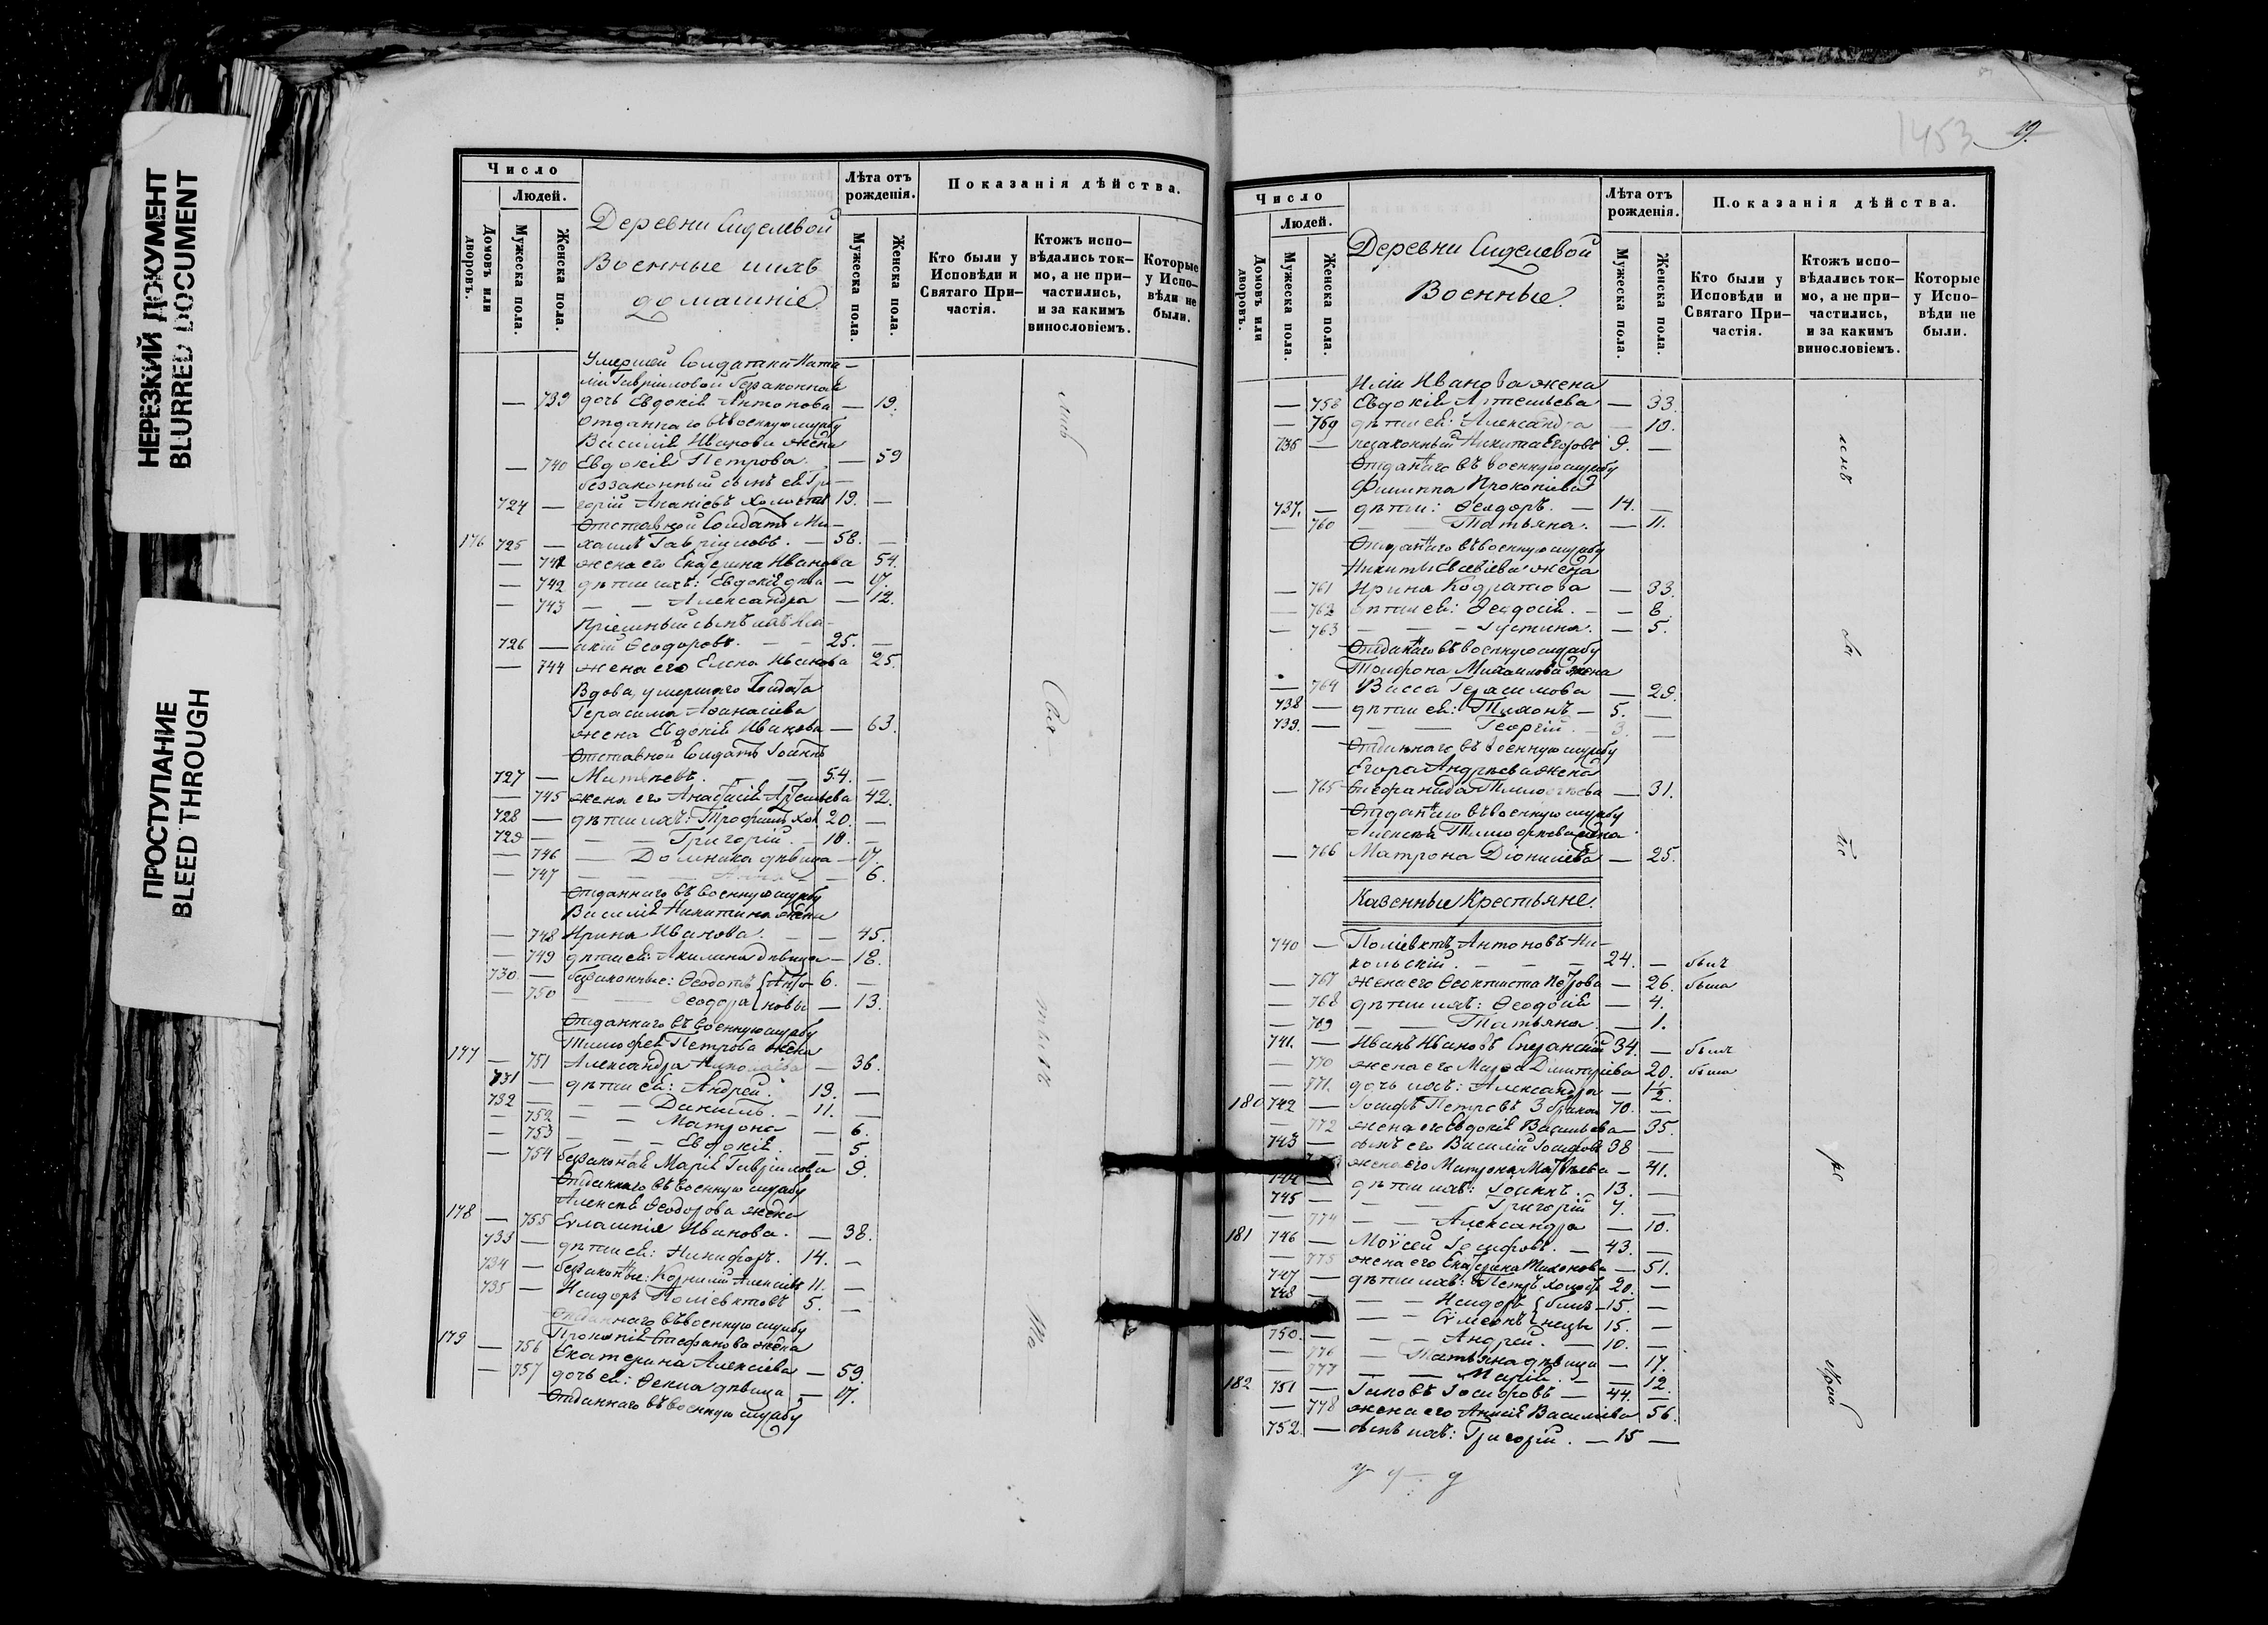 НЕРЕЗКИЙ ДОКУМЕНТ
BLURRED DOCUMENT
ПРОСТУПАНИЕ
BLEED THROUGH
Число
Людей.
Домовъ или дворовъ.
Мужеска пола.
Женска пола.
Деревни Сиделевой
Военные и ихъ
домашніе
Лѣта отъ рожденія.
Мужеска пола.
Женска пола.
Показанія дѣйства.
Кто были у Исповѣди и Святаго Причастія.
Ктожъ исповѣдались токмо, а не причастились, и за какимъ винословіемъ.
Которые у Исповѣди не были.
Умершей Солдатки Ната-
ліи Гавріиловой безаконная
— 739 дочь Евдокія Антонова — 19.
Отданнаго въ военную службу
Василія жена
— 740 Евдокія Петрова — 59
беззаконный сынъ ея Гри-
724 — горій Ананіевъ холостъ 19. —
Отставной Солдатъ Ми-
176 725 — хаилъ Гавріиловъ. — 58. —
— 741 жена его Екатерина Иванова 54.
— 742 дѣти ихъ: Евдокія дѣва — 17.
— 743 — — Александра — 12.
Пріемный сынъ ихъ
726 — Ѳеодоровъ. — — 25. —
— 744 жена его Елена Иванова 25.
Вдова, умершаго Солдата
Герасима Аѳанасіева
жена Евдокія Иванова — 63.
Отставной Солдатъ Іоаннъ
727 — 54. —
— 745 жена его Анастасія 42.
728 — дѣти ихъ: Трофимъ хол 20. —
729 — — — Григорій. — 10. —
— 746 — Домника дѣвица — 17.
— 747 — — — Анна — 6.
Отданнаго въ военную службу
Василія Никитина жена
— 748 Ирина Иванова. — — 45.
— 749 дѣти ея: Акилина дѣвица — 18.
730 — безаконные: Ѳеодотъ { Анто- 6. —
— 750 — — Ѳеодора { новы — 13.
Отданнаго въ военную службу
Тимофея Петрова жена
177 — 751 Александра Николаева — 36.
731 — дѣти ея: Андрей. 13. —
732 — — — Даніилъ. — 11. —
— 752 — — Матрона — 6.
— 753 — — — Евдокія. — 5.
— 754 безаконная Марія Гавріилова 9.
Отданнаго въ военную службу
Алексѣя Ѳеодорова жена
178 — 755 Евлампія Иванова. — 38.
733 — дѣти ея: Никифоръ. 14. —
734 — безаконные: Корнилій Алексіевъ 11. —
735 — Исидоръ Поліевктовъ 5. —
Отданнаго въ военную службу
Прокопія Стефанова жена
179 — 756 Екатерина Алексіева — 59.
— 757 дочь ея: Ѳекла дѣвица — 17.
Отданнаго въ военную службу
1453
19.
Число
Людей.
Домовъ или дворовъ.
Мужеска пола.
Женска пола.
Деревни Сиделевой
Военные.
Лѣта отъ рожденія.
Мужеска пола.
Женска пола.
Показанія дѣйства.
Кто были у Исповѣди и Святаго Причастія.
Ктожъ исповѣдались токмо, а не причастились, и за какимъ винословіемъ.
Которые у Исповѣди не были.
Иліи Иванова жена
— 758 Евдокія Артемьева — 33.
— 759 дѣти ея: Александра — 10.
736 — незаконный Никита Егоровъ 9. —
Отданнаго въ военную службу
Филиппа Прокопіева
737. — дѣти: Ѳеодоръ. — 14. —
— 760 — — Татьяна. — 11.
Отданнаго въ военную службу
Никиты Евсевіева жена
— 761 Ирина Кодратова — 33.
— 762 дѣти ея: Ѳеодосія. — — 8.
— 763 — — — Іустина. — 5.
Отданнаго въ военную службу
Трифона Михаилова жена
— 764 Васса Герасимова — 29.
738 — дѣти ея: Тихонъ — 5. —
739. — — — Георгій. — 3. —
Отданнаго въ военную службу
Егора Андреева жена
— 765 Епифанида Тимофеева — 31.
Отданнаго въ военную службу
Алексѣя Тимофеева жена
— 766 Матрона Діонисіева — 25.
Казенные Крестьяне.
740 — Поліевктъ Антоновъ Ни-
кольскій. — — — 24. — былъ
— 767 жена его Ѳеоктиста Петрова — 26. была
— 768 дѣти ихъ: Ѳеодосія — 4.
— 769 — — Татьяна — 1.
741. — Иванъ Ивановъ Сперанскій 34. — былъ
— 770 жена его Марѳа Димитріева 20. была
— 771. дочь ихъ: Александра — 1½.
180 742 — Іосифъ Петровъ 70. —
— 772 жена его Евдокія Васильева — 35.
743 — сынъ его Василій Іосифовъ 38 —
жена его Матрона Матвѣева — 41.
744 — дѣти ихъ: Іоаннъ. 13. —
745 — — — Григорій 7. —
— 774 — — Александра — 10.
181 746 — Моѵсей Іосифовъ. — 43. —
— 775 жена его Екатерина Тихонова — 51.
747 — дѣти ихъ: Петръ холостъ 20. —
748 — — — Исидоръ { близ- 15. —
— — Сѵмеонъ } нецы 15. —
750. — — — Андрей. — 10. —
— 776 — Татьяна дѣвица — 17.
— 777 — — Марія. — — 12.
182 751 — Іаковъ Іосифовъ — 44. —
— 778 жена его Анисія Василіева 56.
752. — сынъ ихъ: Григорій. — 15 —